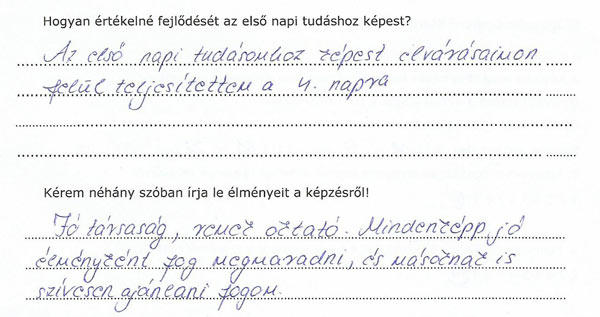 Hogyan értékelné fejlődését az első napi tudáshoz képest?
Az első napi tudásomhoz képest elvárásaimon
felül teljesítettem a 4. napra
Kérem néhány szóban írja le élményeit a képzésről!
Jó társaság, remek oktató. Mindenképp jó
élményként fog megmaradni, és másoknak is
szívesen ajánlani fogom.